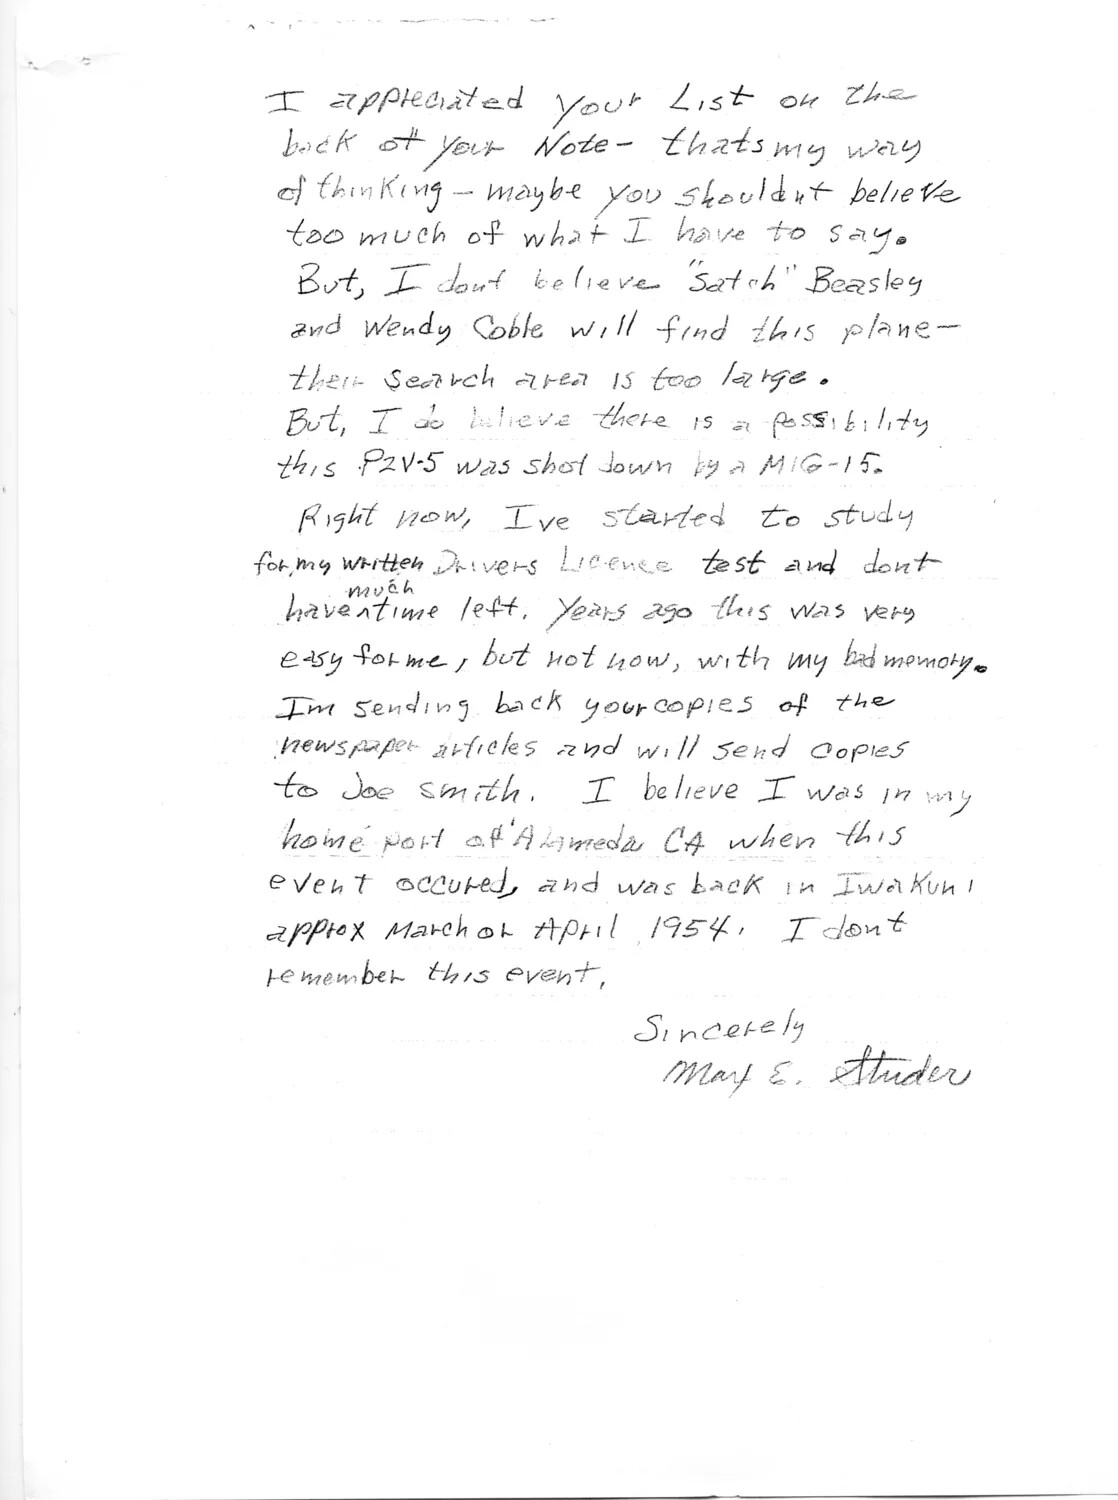 I appreciated your List on the
back of your Note - thats my way
of thinking - maybe you shouldnt believe
too much of what I have to say.
But, I dont believe "Satch" Beasley
and Wendy Coble will find this plane -
their search area is too large.
But, I do believe there is a possibility
this P2V-5 was shot down by a MIG-15.
Right now, Ive started to study
for my written Drivers Licence test and dont
have much time left. Years ago this was very
easy for me, but not now, with my bad memory.
Im sending back your copies of the
newspaper articles and will send copies
to Joe Smith. I believe I was in my
home port of Alameda CA when this
event occured, and was back in Iwakuni
approx March or April 1954. I dont
remember this event.
Sincerely
Max E. Studer